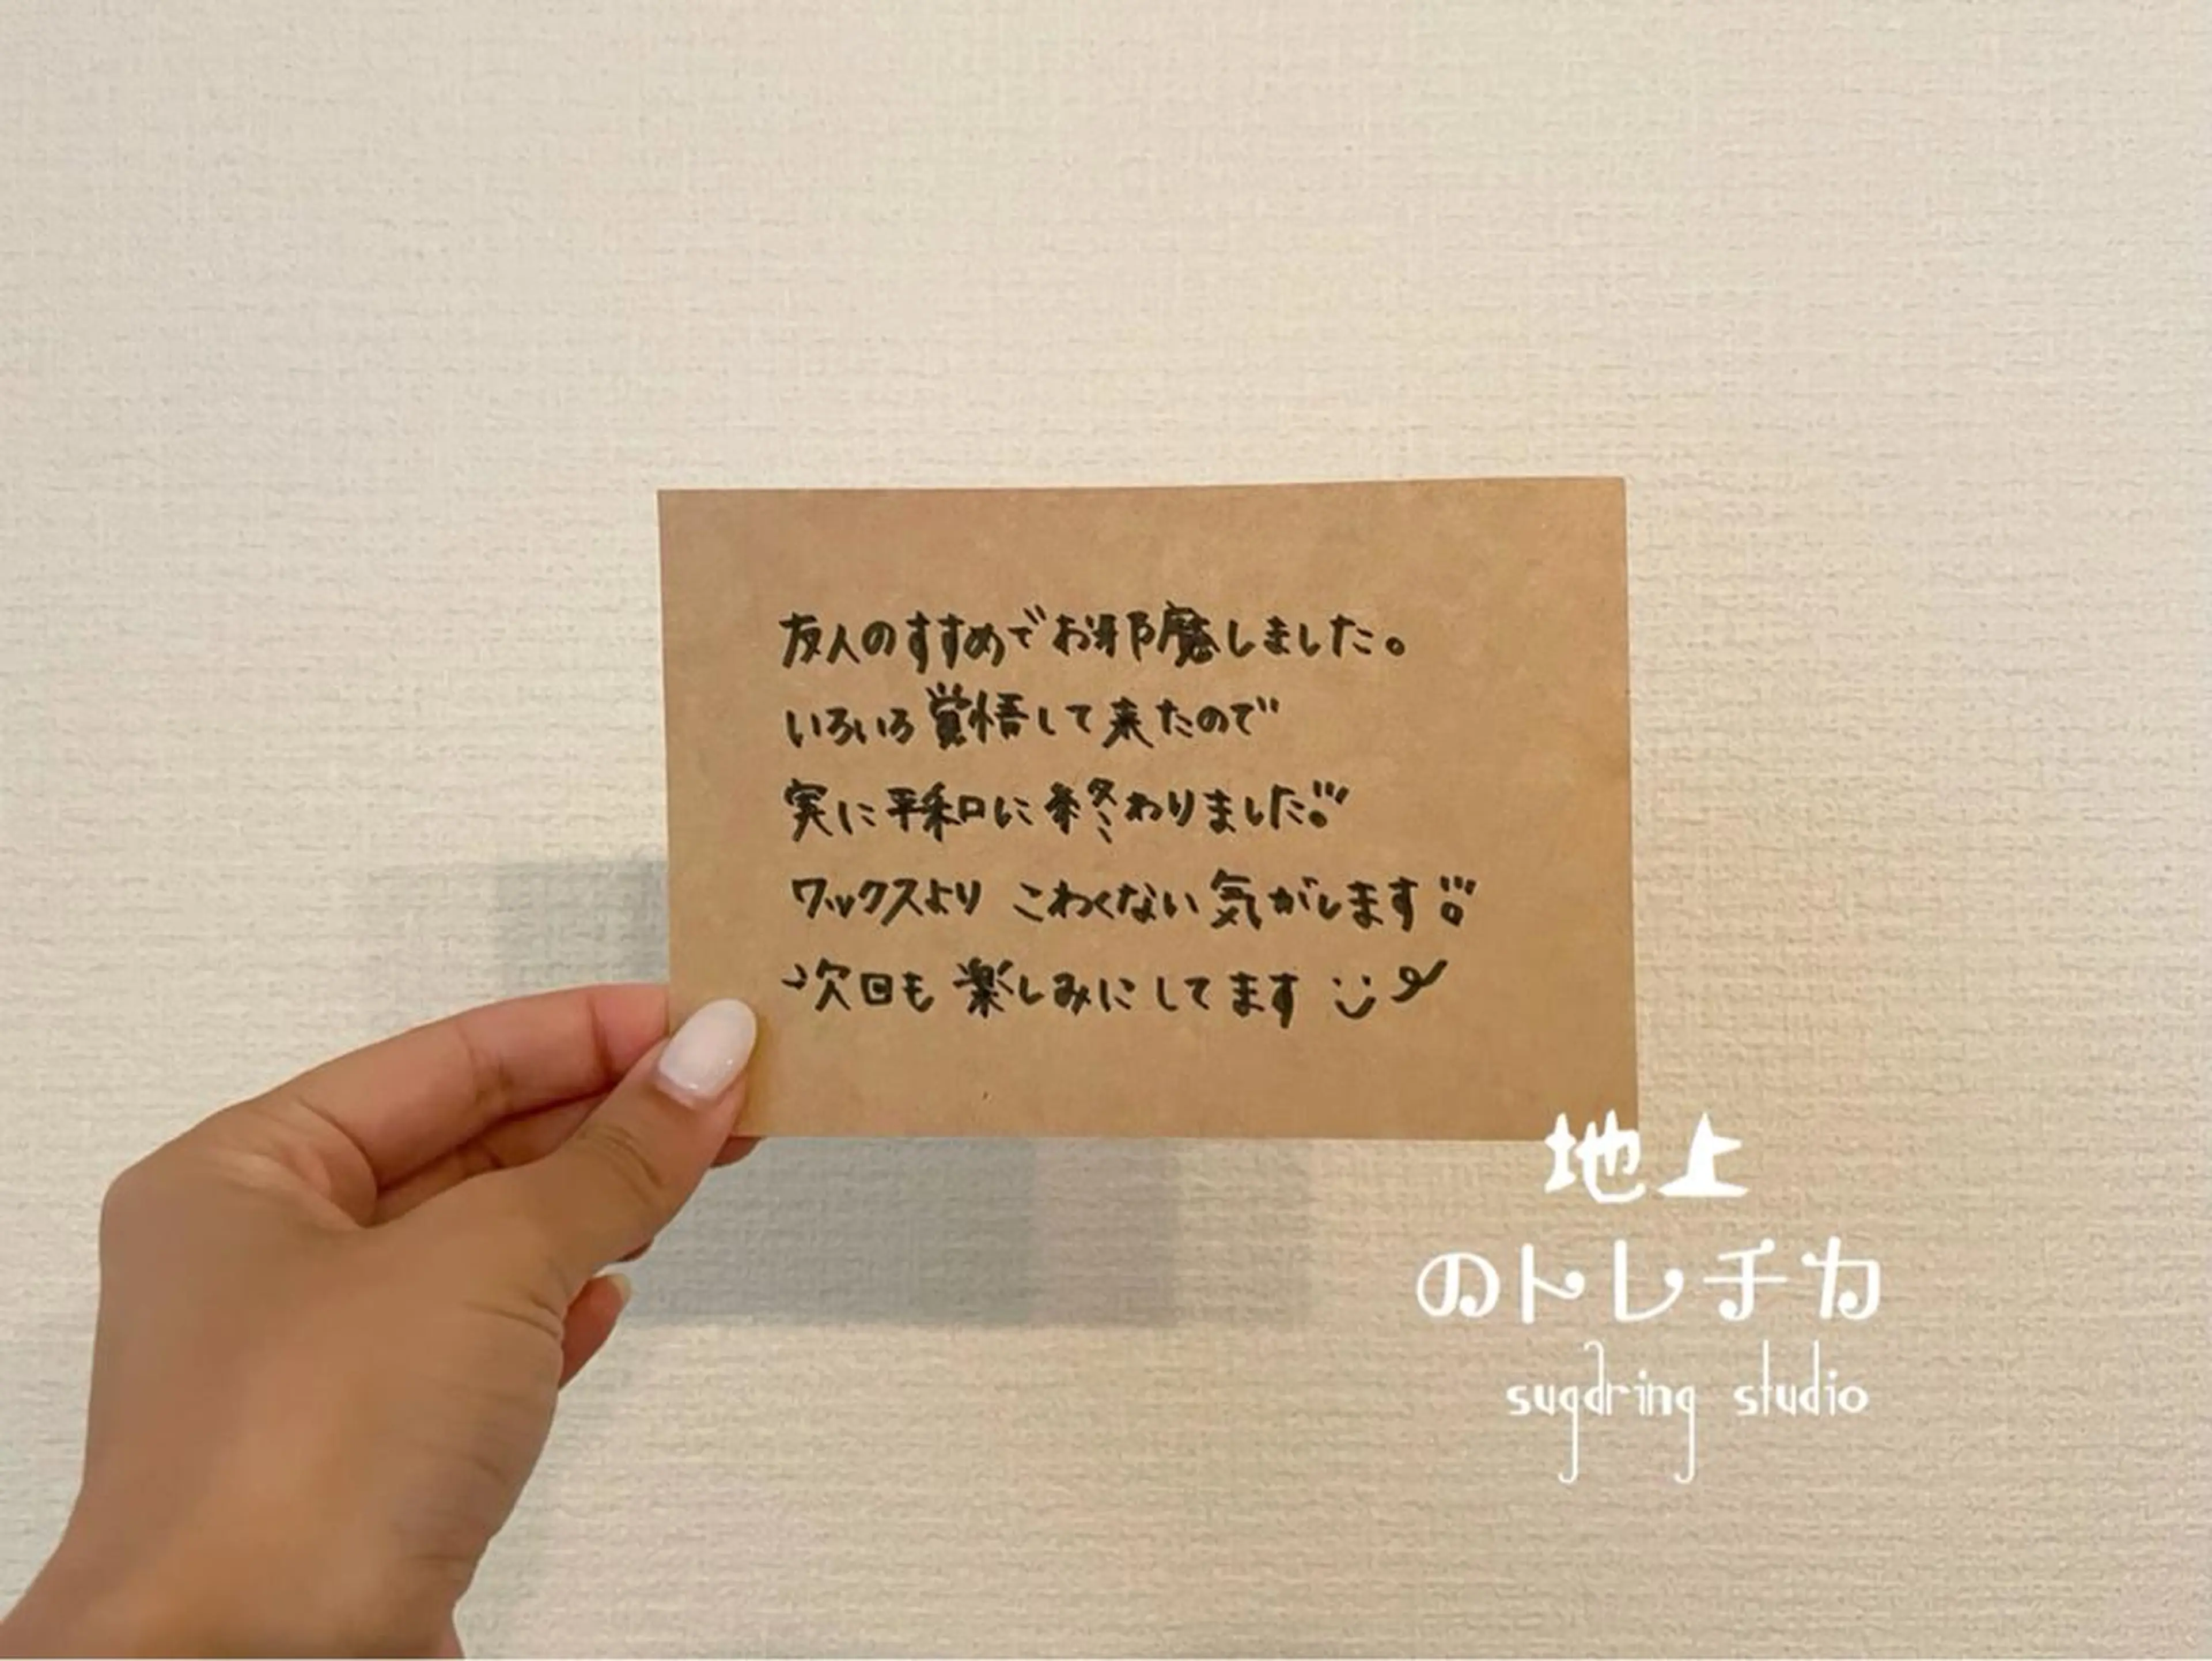 友人のすすめでお邪魔しました。
いろいろ覚悟して来たので
実に平和に終わりました!!!
ワックスより こわくない気がします!!!
次回も楽しみにしてます
地上
のトレチカ
sugdring studio